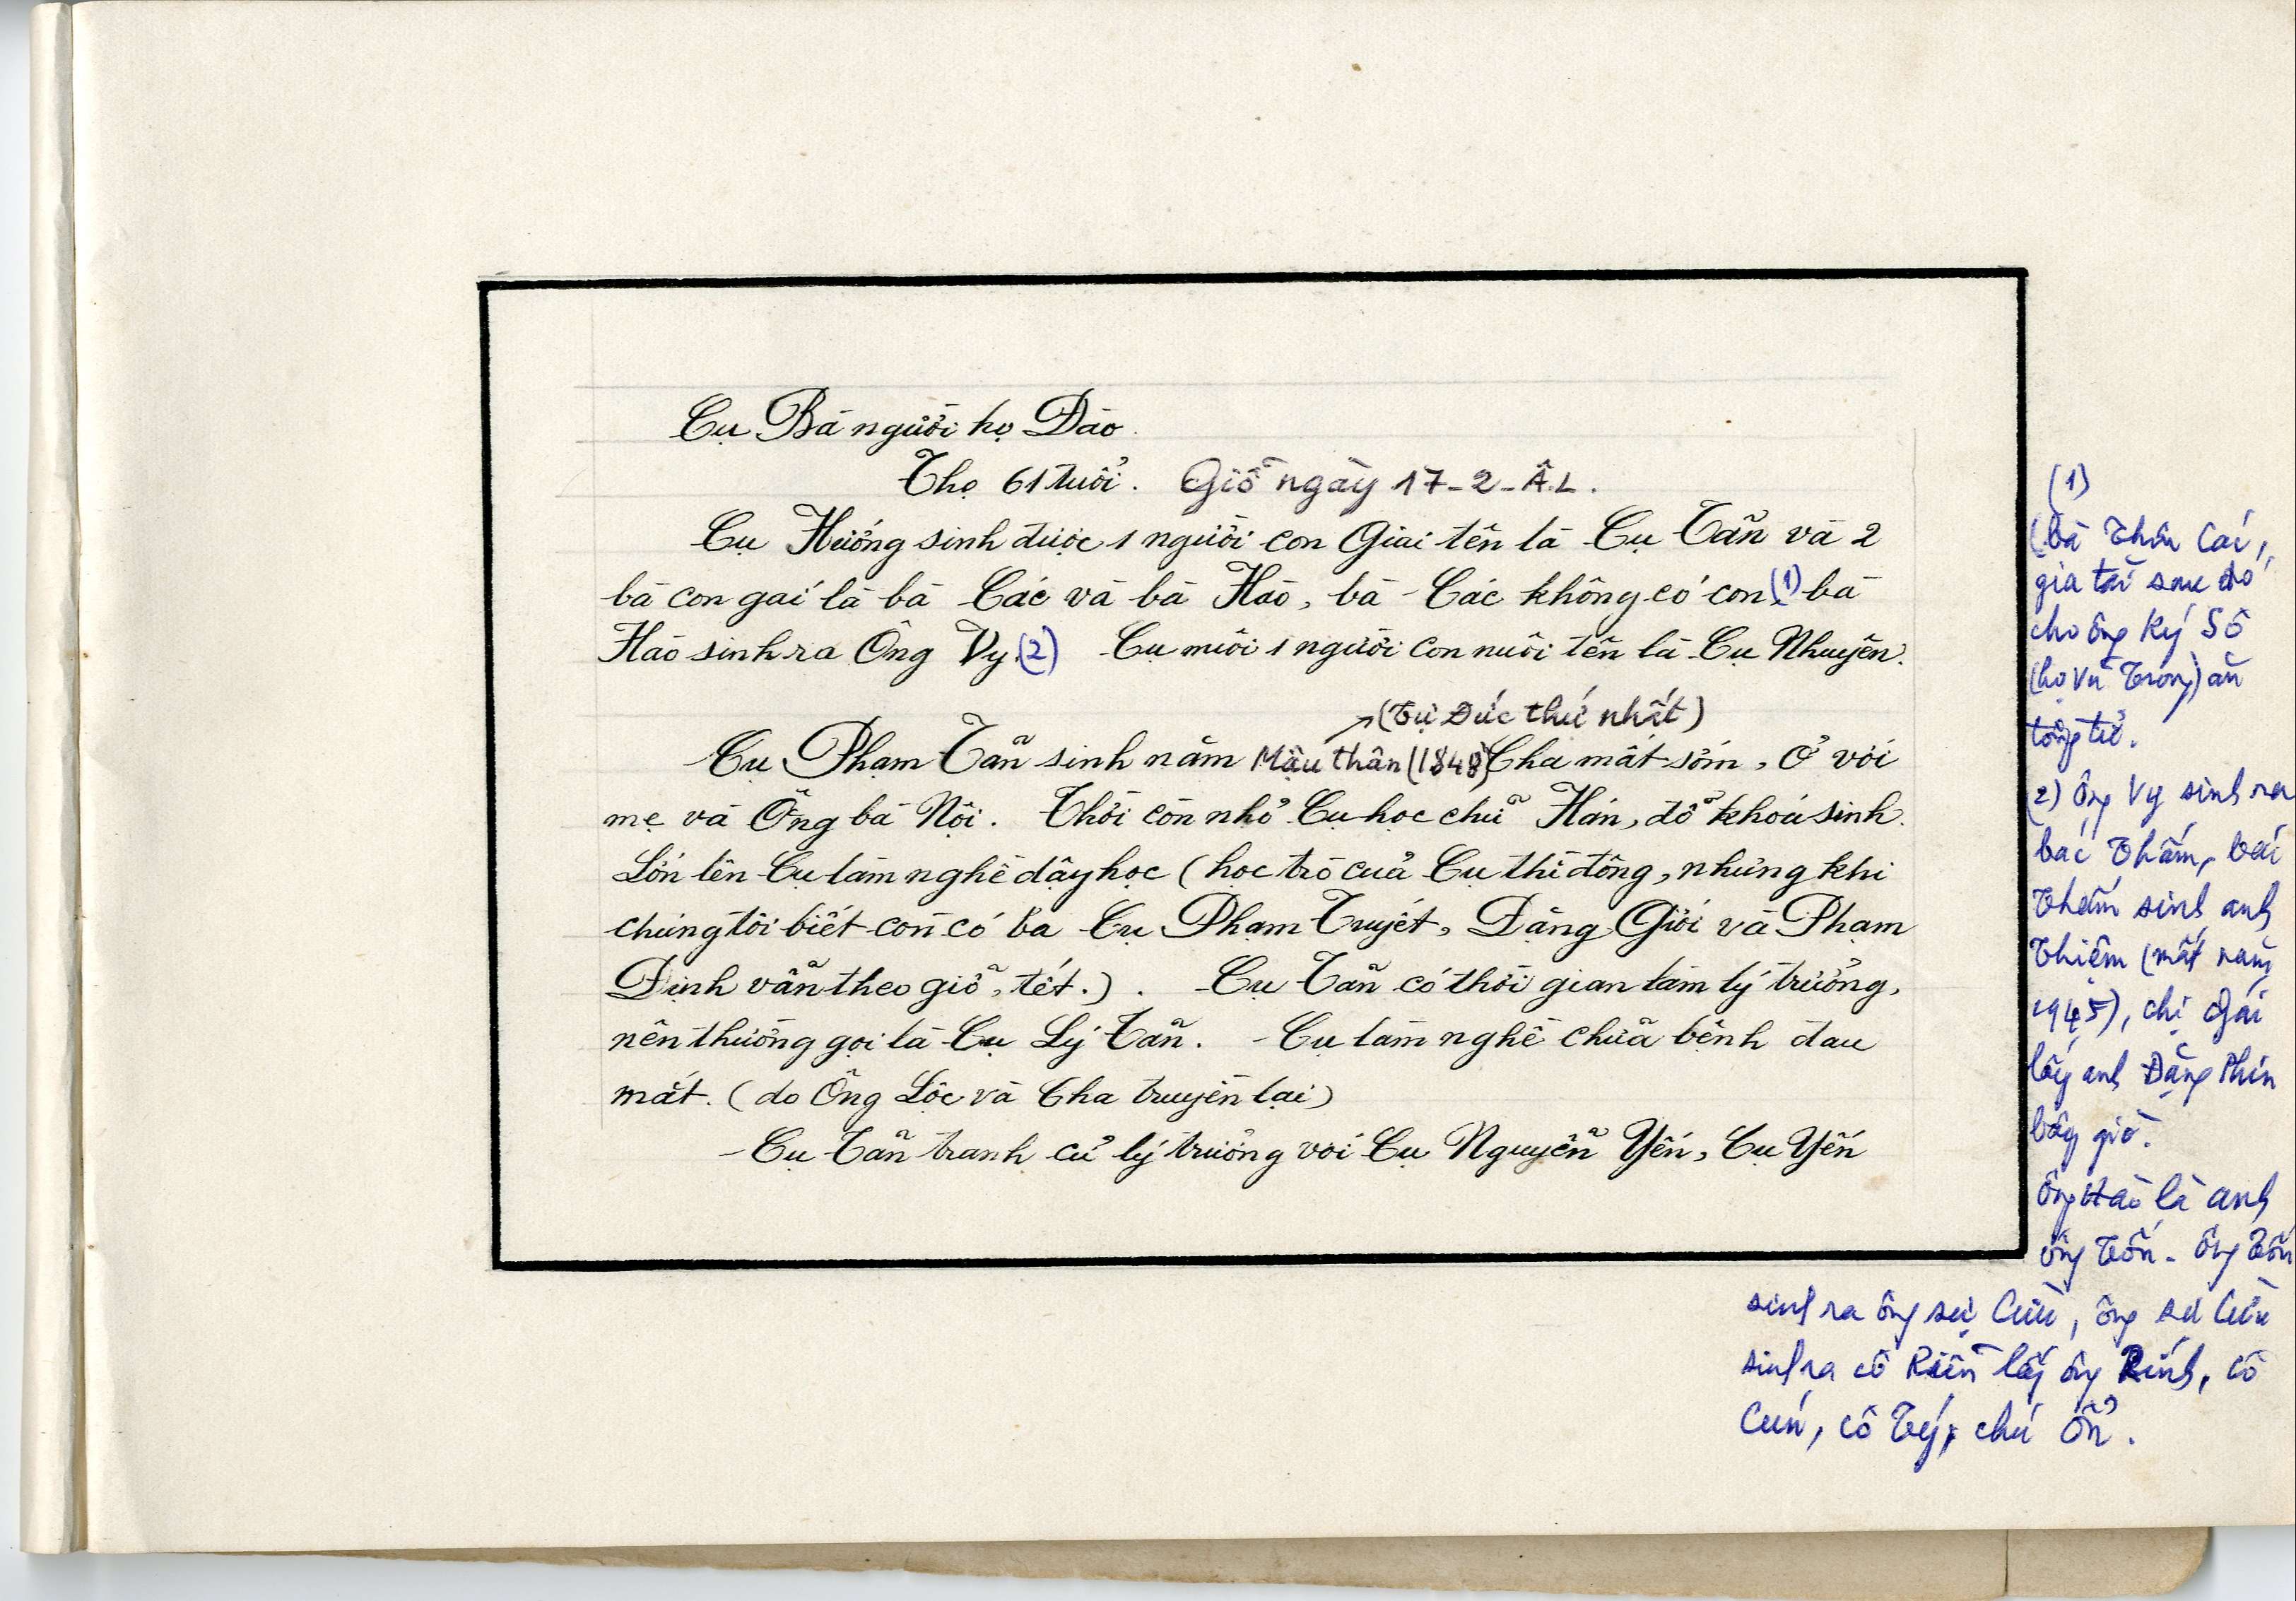 Cụ Bà người họ Đào.
Thọ 61 tuổi. Giỗ ngày 17-2-Â.L.
Cụ Hưởng sinh được 1 người con Giai tên là Cụ Tấn và 2
bà con gái là bà Các và bà Hào, bà Các không có con, (1) bà
Hào sinh ra Ông Vy. (2) Cụ nuôi 1 người con nuôi tên là Cụ Nhuyên.
↗(Tự Đức thứ nhất)
Cụ Phạm Tấn sinh năm Mậu thân (1848) Cha mất sớm, Ở với
mẹ và Ông bà Nội. Thời còn nhỏ Cụ học chữ Hán, đỗ khoá sinh.
Lớn lên Cụ làm nghề dậy học (học trò của Cụ thì đông, nhưng khi
chúng tôi biết còn có ba Cụ Phạm Truyết, Đặng Giới và Phạm
Định vẫn theo giỗ, tết.). Cụ Tấn có thời gian làm lý trưởng,
nên thường gọi là Cụ Lý Tấn. - Cụ làm nghề chữa bệnh đau
mắt. (do Ông Lộc và Cha truyền lại)
- Cụ Tấn tranh cử lý trưởng với Cụ Nguyễn Yến, Cụ Yến
(1)
(bà Thôn Các,
gia tài sau đó
cho ông Ký Sô
(họ Vũ Trọng) ăn
tông tử.
2) ông Vy sinh ra
bác Thấm, bác
Thấm sinh anh
Thiêm (mất năm
1945), chị Gái
lấy anh Đặng Thìn
bây giờ.
ông Hào là anh
ông Tốn - ông Tốn
sinh ra ông sư Cửu, ông sư Cửu
sinh ra cô Riễn lấy ông Rính, cô
Cún, cô Tý, chú Ổn.